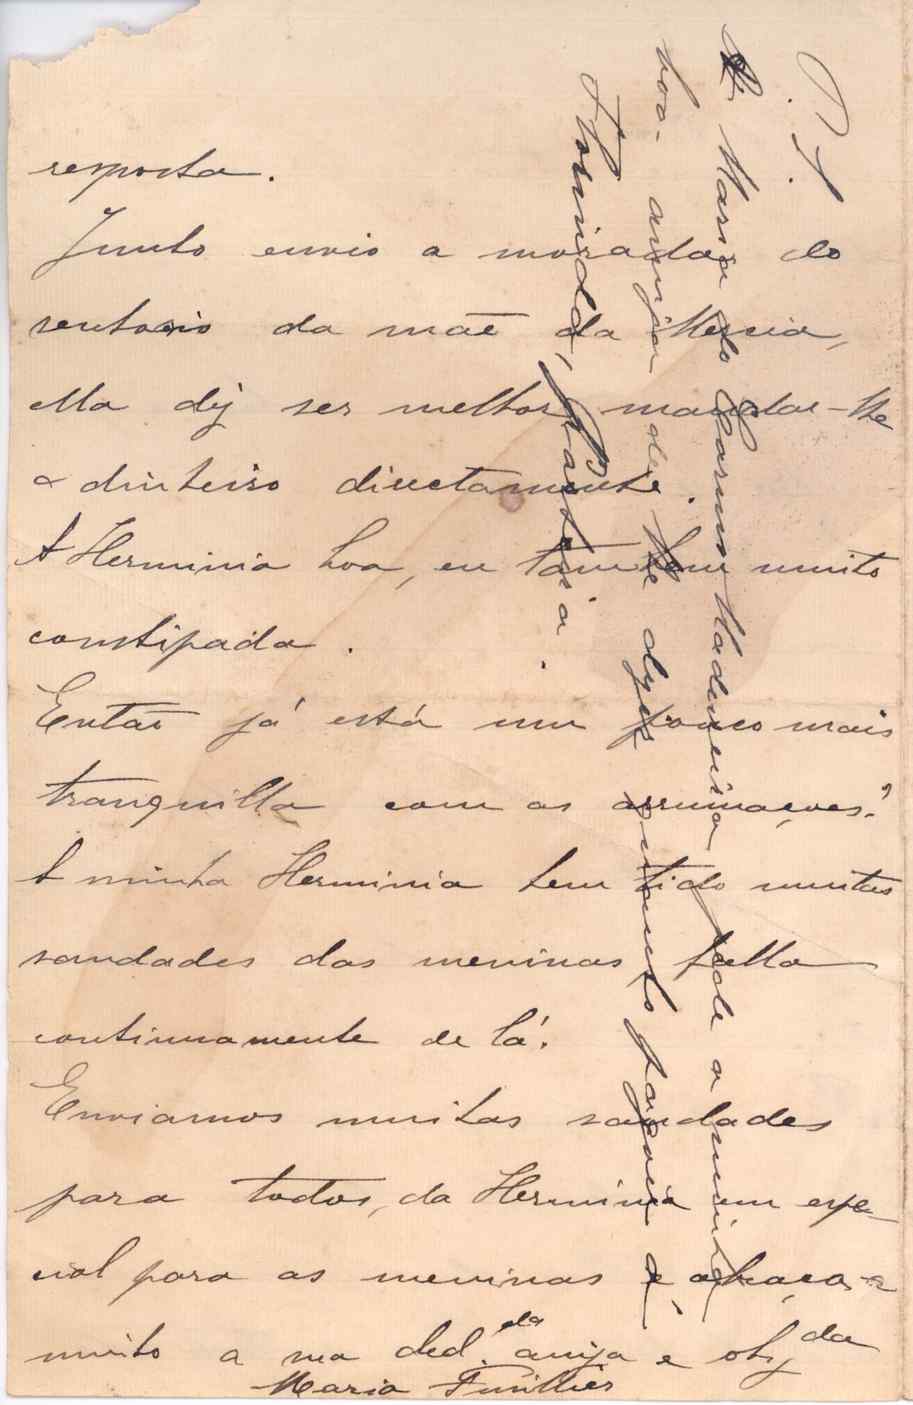 resposta.
Junto envio a morada do
senhorio da mãe da Mercia,
ella diz ser melhor mandar-lhe
o dinheiro directamente.
A Herminia boa, eu tambem muito
constipada.
Então já está um pouco mais
tranquilla com as arrumações?
A minha Herminia tem tido muitas
saudades das meninas falla
continuamente de lá.
Enviamos muitas saudades
para todos, da Herminia em espe-
cial para as meninas e abraça-a
muito a sua ded.da amiga e obg.da
Maria Funillier
P. S.
A Maria do Carmo Madureira pede a minha
boa amiga de lhe dizer quanto pagou á
Florinda, parteira.